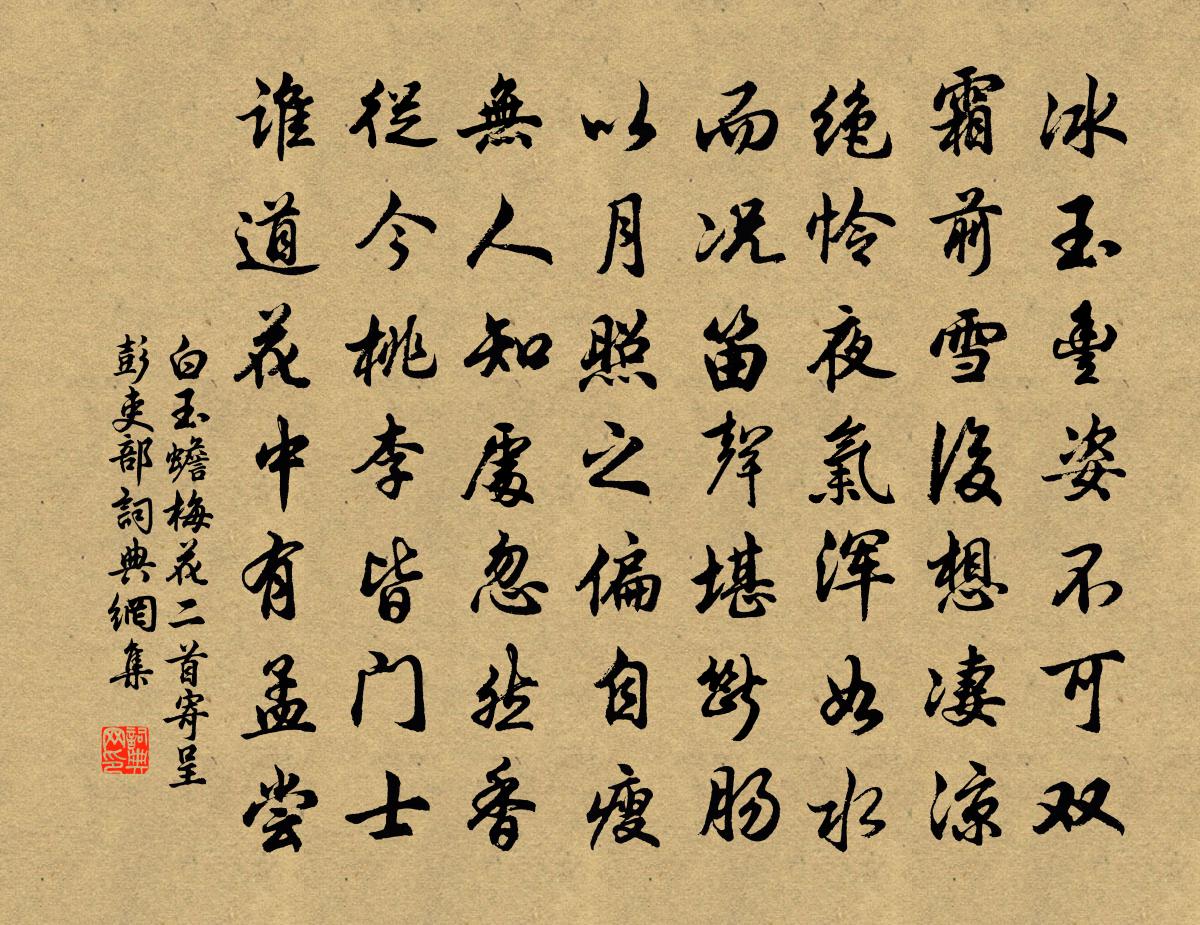 冰玉丰姿不可双
霜前雪後想凄凉
绝怜夜氣浑如水
而况笛声堪断肠
以月照之偏自瘦
無人知處忽然香
從今桃李皆门士
谁道花中有孟尝
白玉蟾梅花二首寄呈
彭吏部詞典網集
詞典网印